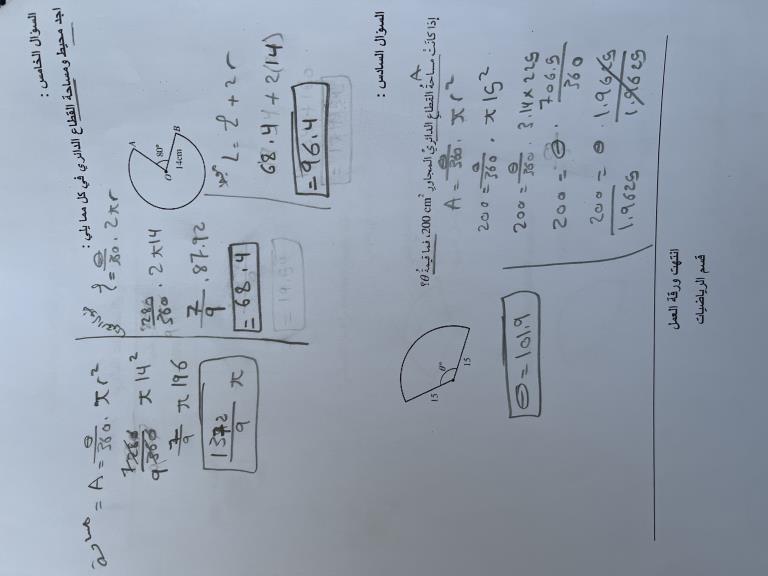 السؤال الخامس :
اجد محيط ومساحة القطاع الدائري في كل مما يلي :
A
80°
O
14cm
B
مساحة = A = θ/360 . π r²
7280/9360 π 14²
7/9 π 196
1372/9 π
ℓ = θ/360 . 2πr
280/360 . 2π14
7/9 . 87.92
= 68.4
L = ℓ + 2r
68.4 + 2(14)
= 96.4
السؤال السادس :
إذا كانت مساحة القطاع الدائري المجاور 200 cm²، فما قيمة θ؟
A
15
θ°
15
A = θ/360 . π r²
200 = θ/360 . π 15²
200 = θ/360 . 3.14 x 225
200 = θ . 706.5/360
200/1.9625 = θ . 1.9625/1.9625
θ = 101.9
انتهت ورقة العمل
قسم الرياضيات